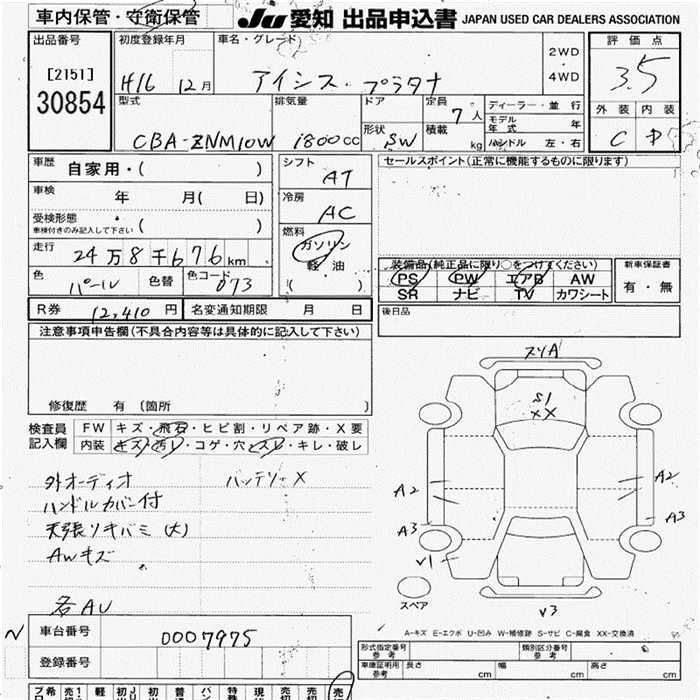 車内保管・守衛保管 JU 愛知 出品申込書 JAPAN USED CAR DEALERS ASSOCIATION
出品番号 初度登録年月 車名・グレード 評価点
[2151] H16 12月 アイシス・プラタナ 2WD・4WD 3.5
30854
型式 排気量 ドア 定員 ディーラー・並行 外装 内装
CBA-ZNM10W 1800cc 形状 SW 7人 積載 kg モデル年式 年 C D
ハンドル 左・右
車歴 自家用・( ) シフト AT セールスポイント(正常に機能するものに限ります)
車検 年 月( 日) 冷房 AC
受検形態 車検付きのみ記入して下さい ( )
燃料 ガソリン 軽油 ( )
走行 24万8千676km
色 パール 色替 色コード 073
装備品(純正品に限り○をつけてください) 新車保証書
PS PW エアB AW 有・無
SR ナビ TV カワシート
R券 12,410円 名変通知期限 月 日 後日品
注意事項申告欄(不具合内容等は具体的に記入して下さい)
修復歴 有 (箇所 )
検査員記入欄 FW キズ・飛石・ヒビ割・リペア跡・X要
内装 キズ・汚レ・コゲ・穴・スレ・キレ・破レ
スリA
S1
XX
外オーディオ バッテリーX
ハンドルカバー付
天張ソキバミ(大)
AWキズ
各AU
A2 A2
A3 A3
V1
V3
スペア
A-キズ E-エクボ U-凹み W-補修跡 S-サビ C-腐食 XX-交換済
N 車台番号 0007975
登録番号
型式指定番号 参考 類別区分番号 参考
車庫証明用 参考 長さ cm 幅 cm 高さ cm